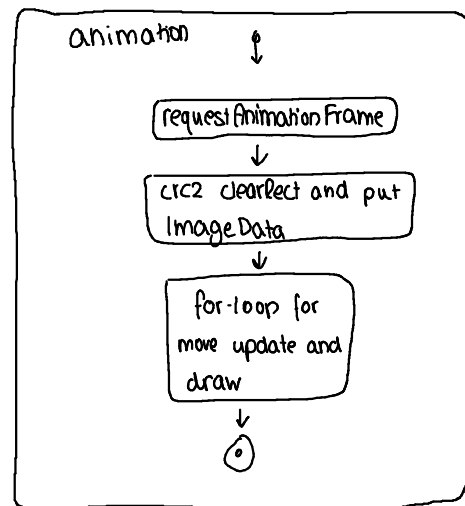 animation
requestAnimationFrame
crc2 clearRect and put
ImageData
for-loop for
move update and
draw